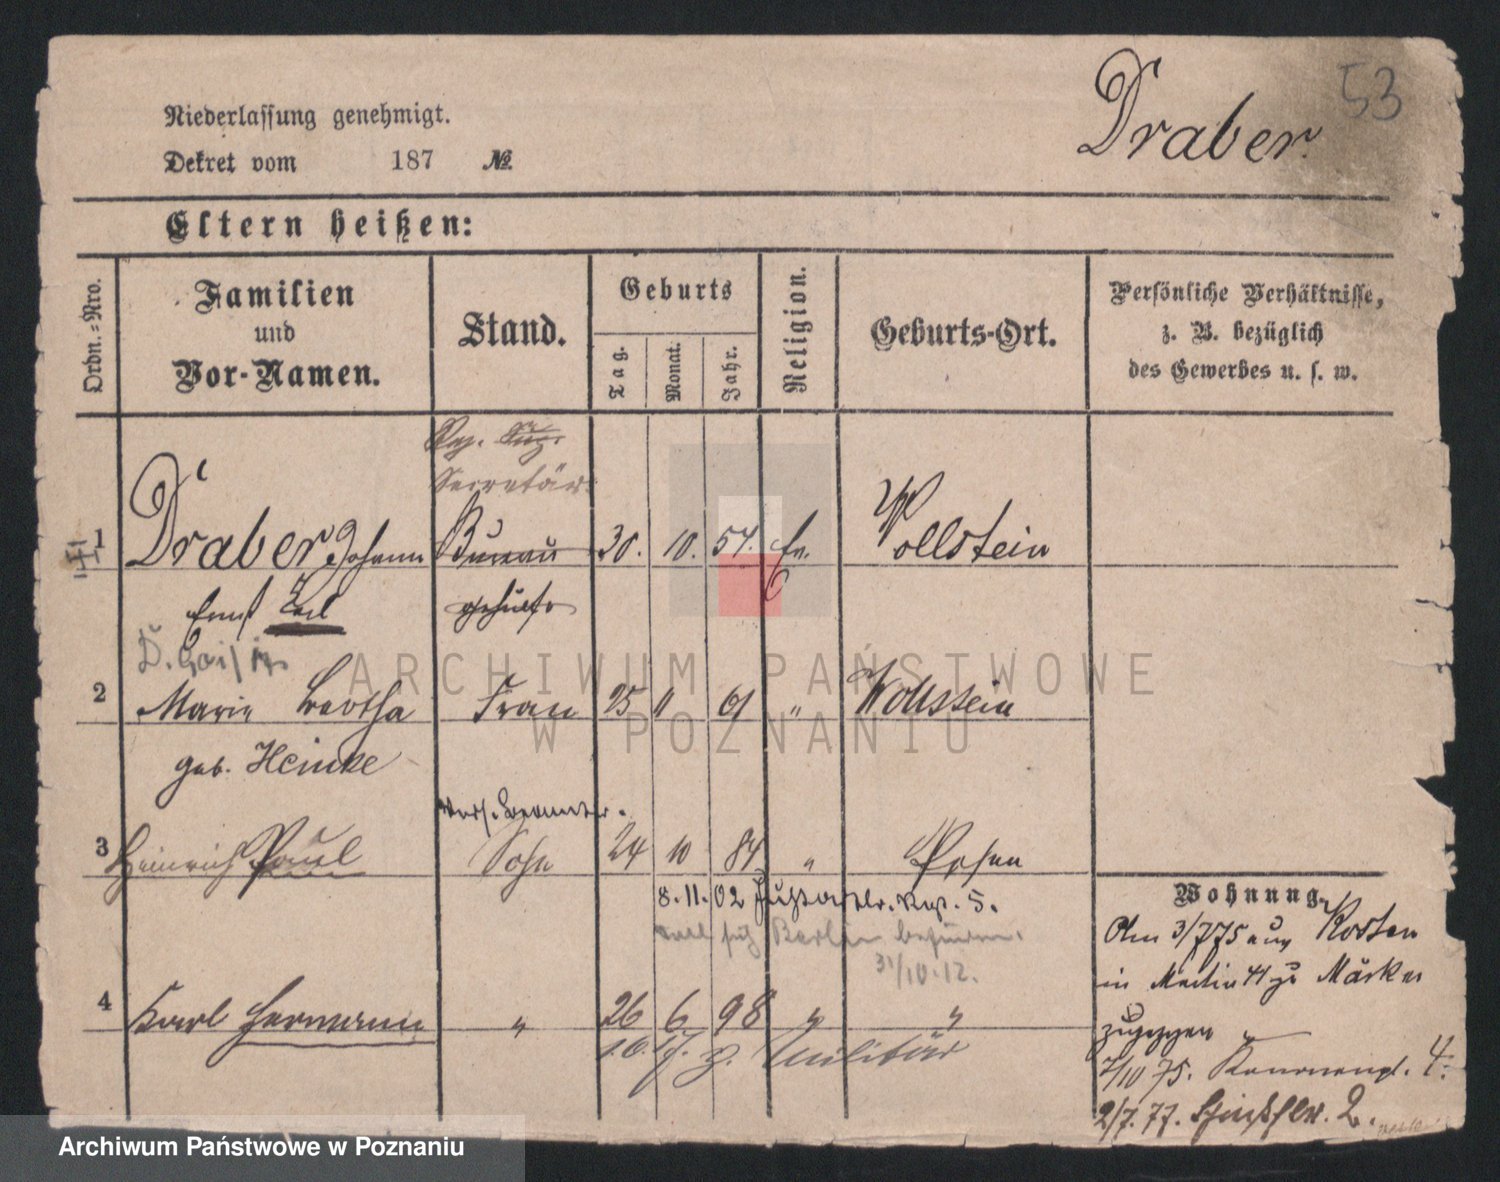 53
Draber.
Niederlassung genehmigt.
Dekret vom 187 №.
Eltern heißen:
Ordn.-Nro.
Familien
und
Vor-Namen.
Stand.
Geburts
Tag.
Monat.
Jahr.
Religion.
Geburts-Ort.
Persönliche Verhältnisse,
z. B. bezüglich
des Gewerbes u. s. w.
Reg.
Secretär
1 Draber Johann Bureau 30. 10. 57. Wollstein
Ernst Karl gehülfe
2 Marie Bertha Frau 25 11 61 " Wollstein
geb. Heinke
3 Heinrich Paul Sohn 24 10 84 " Posen
8.11.02 5.
Berlin
31/10.12.
4 Karl Hermann " 26 6 98 " "
1.6.17. z. Militär
Wohnung.
Am 3/7 75 aus Kosten
in Martin 41 zu Märker
zugezogen
7/10 75. 4.
2/7. 77. 2.
ARCHIWUM PAŃSTWOWE
W POZNANIU
Archiwum Państwowe w Poznaniu